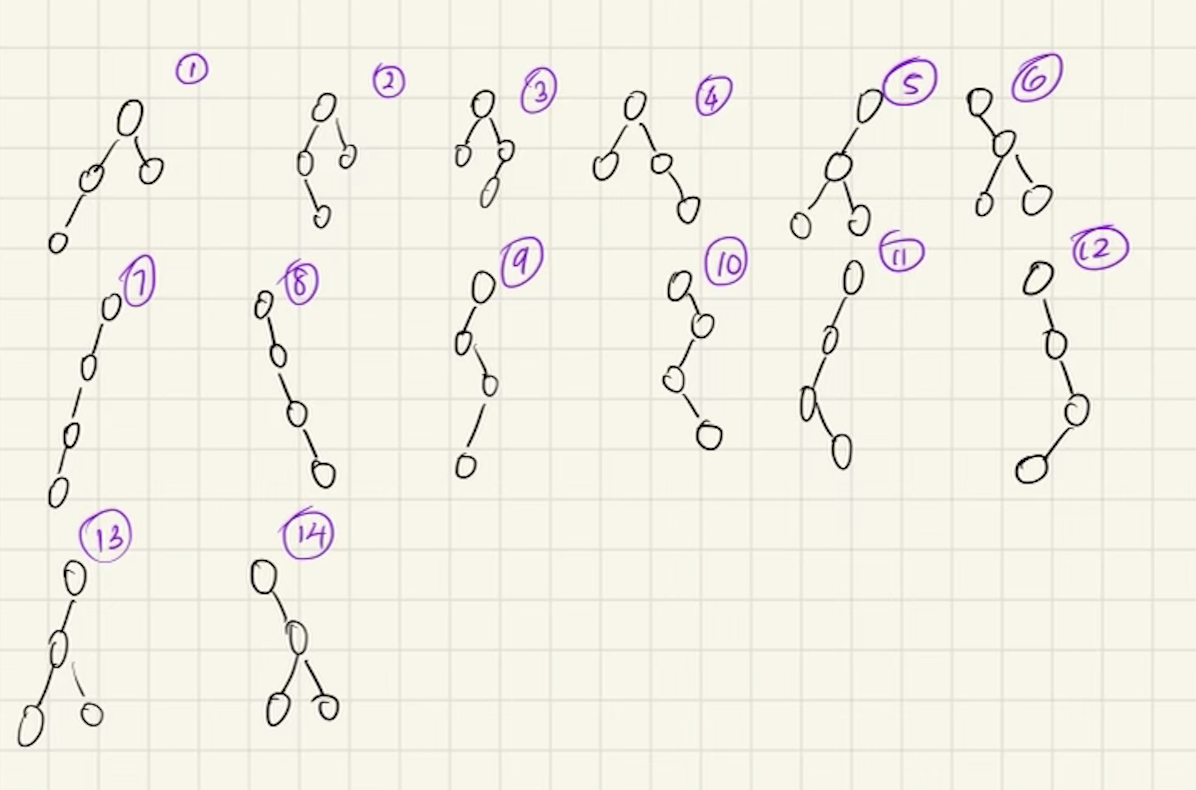 ① ② ③ ④ ⑤ ⑥
⑦ ⑧ ⑨ ⑩ ⑪ ⑫
⑬ ⑭